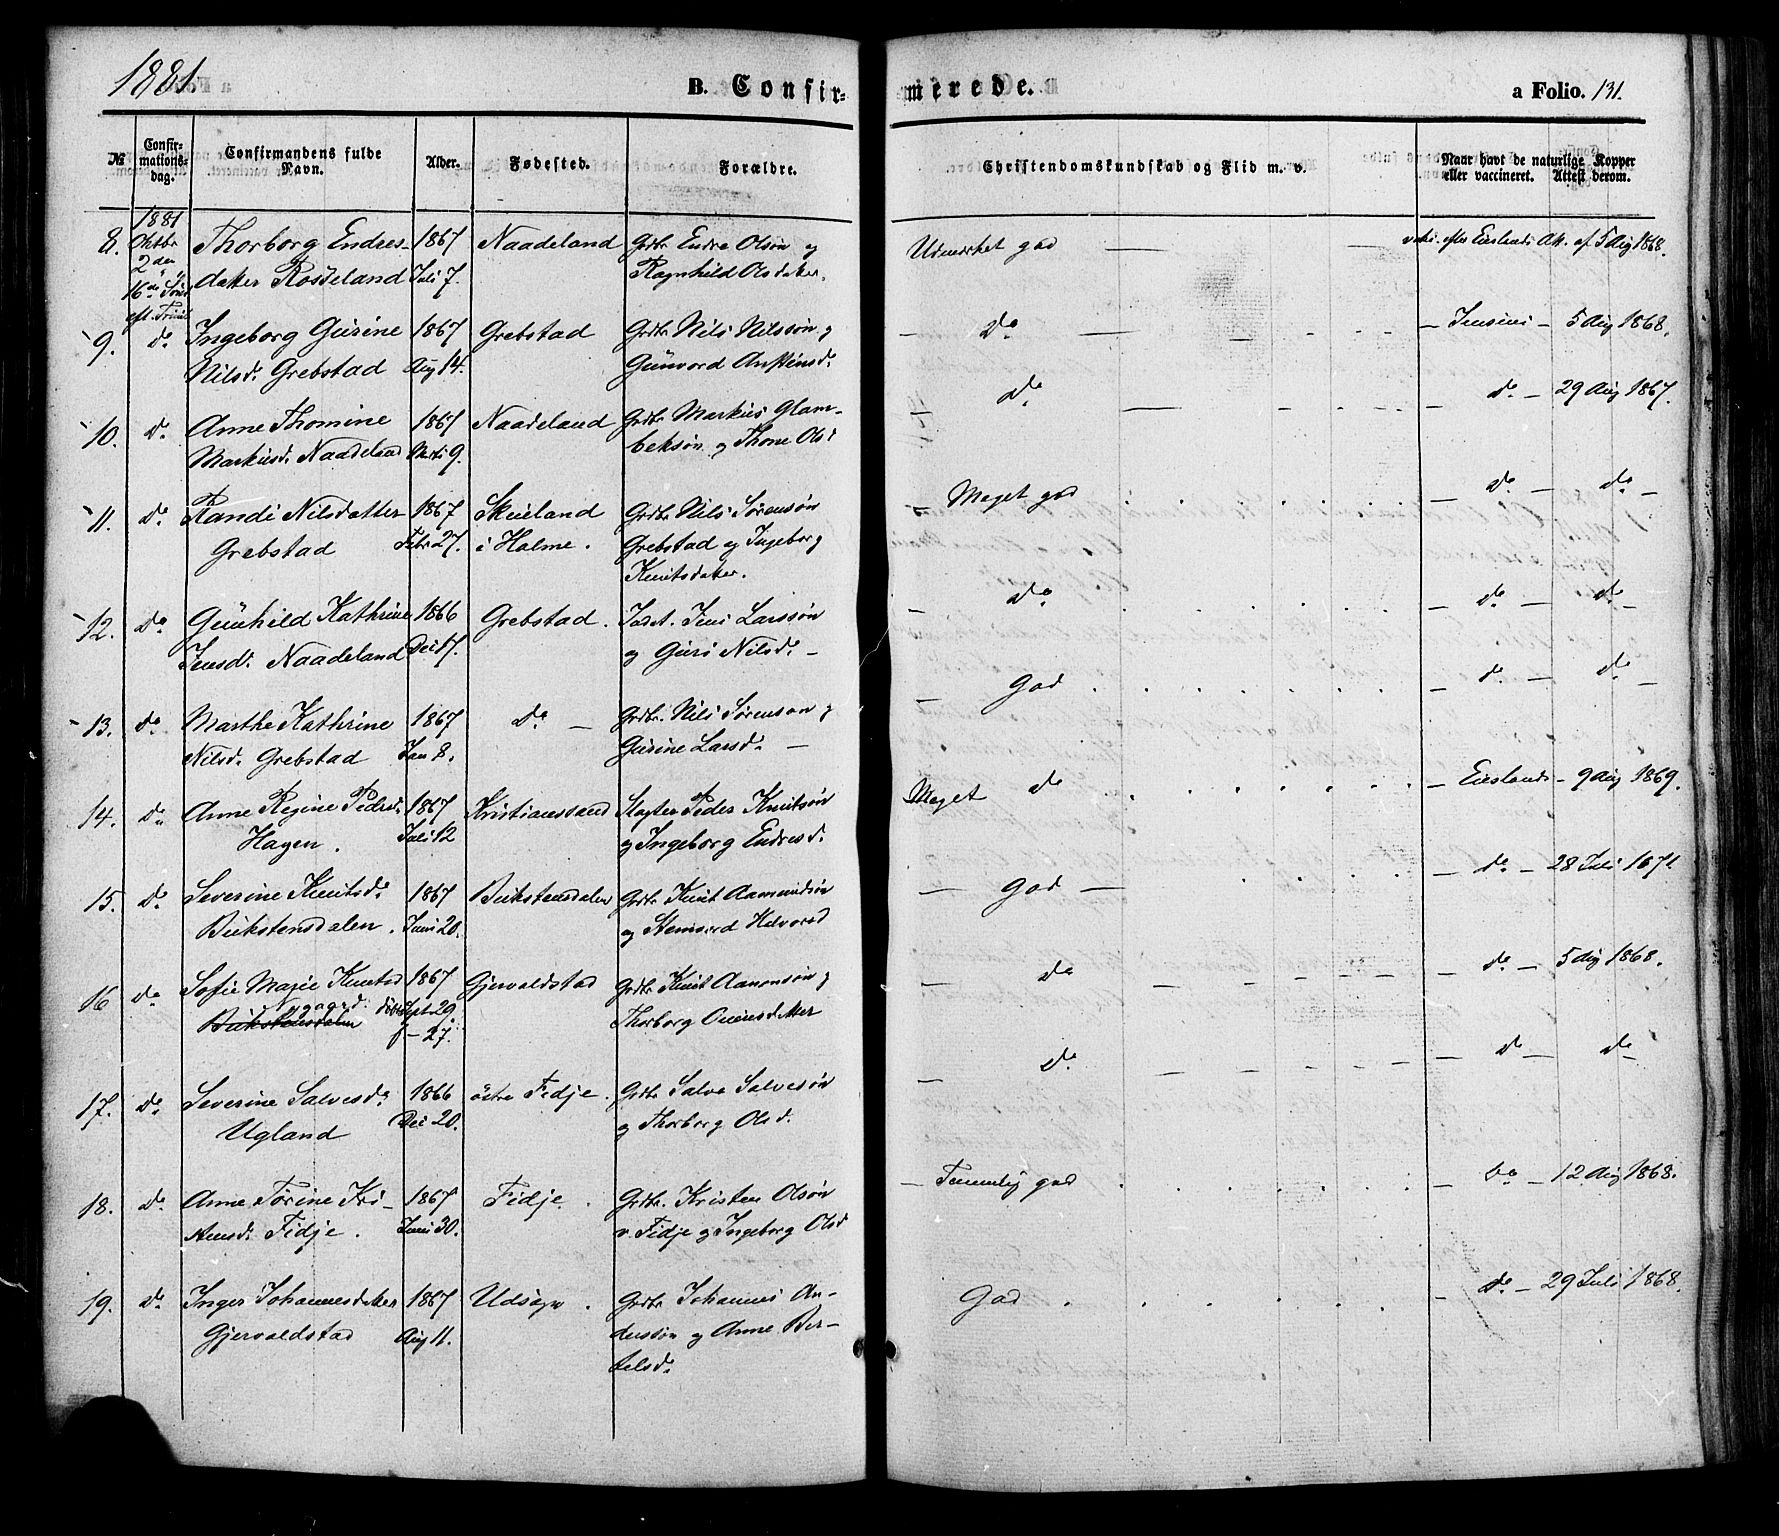 1881.
B. Confir=
merede.
a Folio. 131.
№
Confir-
mations-
dag.
Confirmandens fulde
Navn.
Alder.
Fødested.
Forældre.
Christendomskundskab og Flid m. v.
Naar havt de naturlige Kopper
eller vaccineret. Attest derom.
8.
1881
Oktbr
2den
16de Sønd
eft. Trinit
Thorborg Endres-
datter Rosseland
1867
Juli 7.
Naadeland
Grdbr Endre Olsøn og
Ragnhild Olsdatter.
Udmærket god
vaki. efter Eieslands Att. af 5 Aug 1868.
9. do
Ingeborg Gurine
Nilsd. Grebstad
1867
Aug 14.
Grebstad
Grdbr Nils Nilssøn og
Gunvord Anstensd.
do
— Jensens — 5 Aug 1868.
10. do
Anne Thomine
Markusd. Naadeland
1867
Marts 9.
Naadeland
Grdbr Markus Glam-
beksøn og Thone Olsd
do
do — 29 Aug 1867.
11. do
Randi Nilsdatter
Grebstad
1867
Febr 27.
Skeieland
i Halme.
Grdbr Nils Sørensøn
Grebstad og Ingeborg
Knutsdatter.
Meget god
do — do —
12. do
Gunhild Kathrine
Jensd. Naadeland
1866
Dec 17.
Grebstad.
Jens Larssøn
og Guri Nilsd. —
do
do — do —
13. do
Marthe Kathrine
Nilsd. Grebstad
1867
Jan 8.
do —
Grdbr. Nils Sørenson og
Gurine Larsd. —
God
do — do —
14. do
Anne Regine Pedersd.
Hagen.
1867
Juli 12
Kristianssand
Slagter Peder Knutsøn
og Ingeborg Endresd.
Meget do
— Eieslands — 9 Aug 1869.
15. do
Severine Knutsd.
Bukstensdalen.
1867
Juni 20.
Bukstensdalen
Grdbr Knut Aamundsøn
og Halvorsd
God
do — 28 Juli 1871
16 do
Sofie Marie Knutsd
Nygaard.
Bukstensdalen
1867
døbt Sept 29.
f — 27.
Gjervoldstad
Grdbr Knut Aanonsøn og
Thorborg Ouensdatter
do
do — 5 Aug 1868.
17. do
Severine Salvesd.
Ugland
1866
Dec 20.
østre Fidje.
Grdbr Salve Salvesøn
og Thorborg Olsd.
do
do — do —
18. do
Anne Torine Kri-
stensd. Fidje.
1867
Juni 30.
Fidje.
Grdbr. Kristen Olsøn
v. Fidje og Ingeborg Olsd
Temmelig god
do — 12 Aug 1868.
19. do
Inger Johannesdatter
Gjervoldstad
1867
Aug 11.
Udsogn.
Grdbr Johannes An-
derssøn og Anne Ber-
telsd.
God
do — 29 Juli 1868.